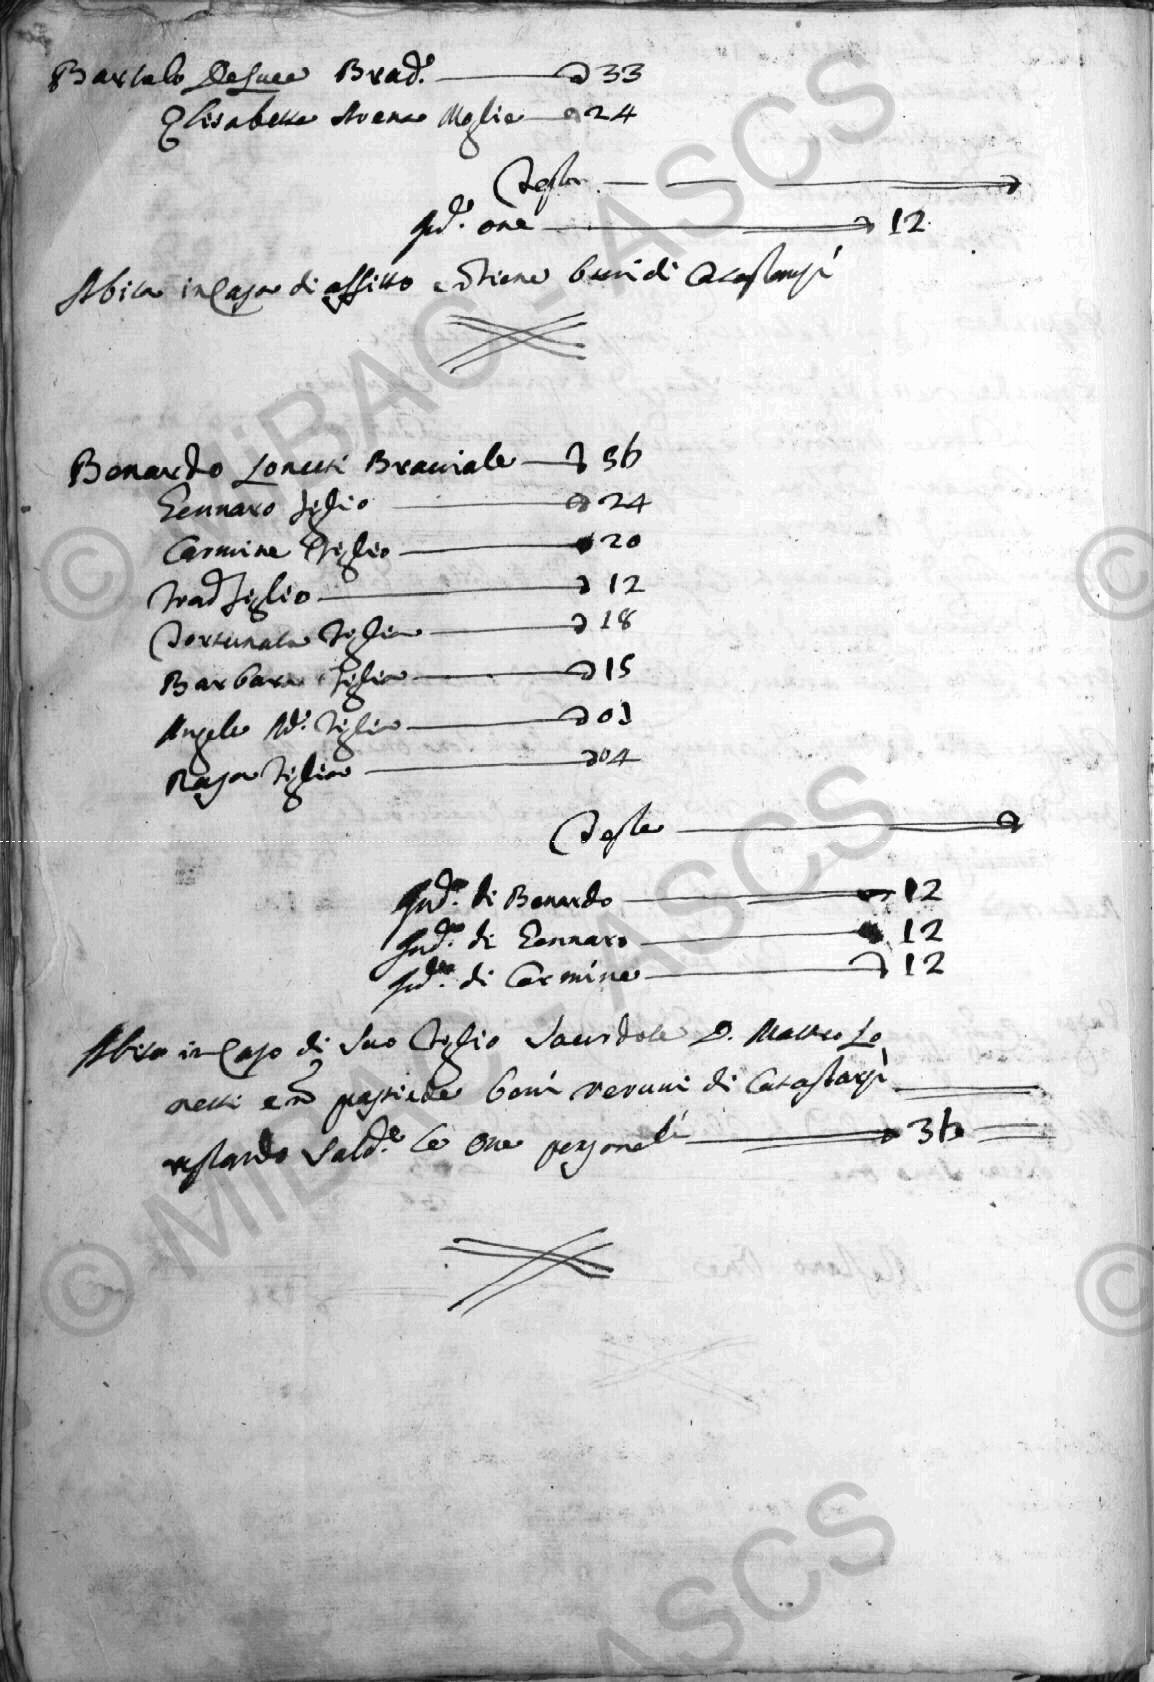 Bartolo DeLuca Brad.e — d 33
Elisabetta Avena Moglie — d 24
Testa
Ind.a one — 12
Abita in Casa di affitto e tiene beni di Catastarsi
Benardo Lonetti Bracciale — d 56
Gennaro figlio — d 24
Carmine figlio — 20
figlio — d 12
Fortunata figlia — d 18
Barbara figlia — d 15
Angela M.a figlia — d 01
Rosa figlia — d 04
Testa
Ind.a di Benardo — 12
Ind.a di Gennaro — 12
Ind.a di Carmine — 12
Abita in Casa di suo figlio Sacerdote D. Matteo Lo
netti e nò possiede beni veruni di Catastarsi
restando le one personali — 36
© MiBAC - ASCS
© MiBAC - ASCS
ASCS
©
©